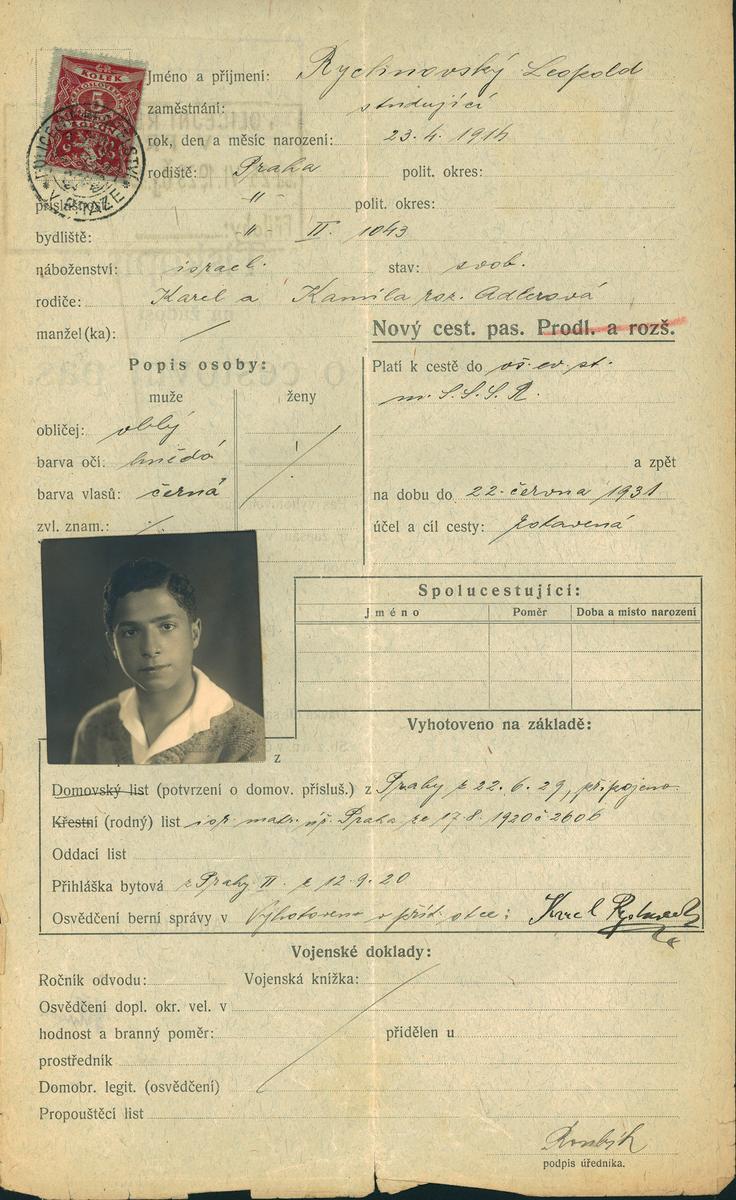 KOLEK
5
V PRAZE
Jméno a příjmení: Rychnovský Leopold
zaměstnání: studující
rok, den a měsíc narození: 23. 4. 1914
rodiště: Praha polit. okres:
-"- polit. okres:
bydliště: -"- II. 1043
náboženství: israel. stav: svob.
rodiče: Karel a Kamila roz. Adlerová
manžel (ka): /
Nový cest. pas. Prodl. a rozš.
Popis osoby:
muže ženy
obličej: oblý
barva očí: hnědá
barva vlasů: černá
zvl. znam.: ./.
Platí k cestě do vš. ev. st.
m. S.S.S.R.
a zpět
na dobu do 22. června 1931
účel a cíl cesty:
Spolucestující:
Jméno Poměr Doba a místo narození
Vyhotoveno na základě:
z
Domovský list (potvrzení o domov. přísluš.) z Prahy z 22. 6. 29, připojeno.
Křestní (rodný) list isr. matr. úř. Praha ze 17. 8. 1920 č 2606
Oddací list
Přihláška bytová z Prahy II. z 12. 9. 20
Osvědčení berní správy v Vyhotoveno v přít. otce: Karel
Vojenské doklady:
Ročník odvodu: Vojenská knížka:
Osvědčení dopl. okr. vel. v
hodnost a branný poměr: přidělen u
prostředník
Domobr. legit. (osvědčení)
Propouštěcí list
podpis úředníka.